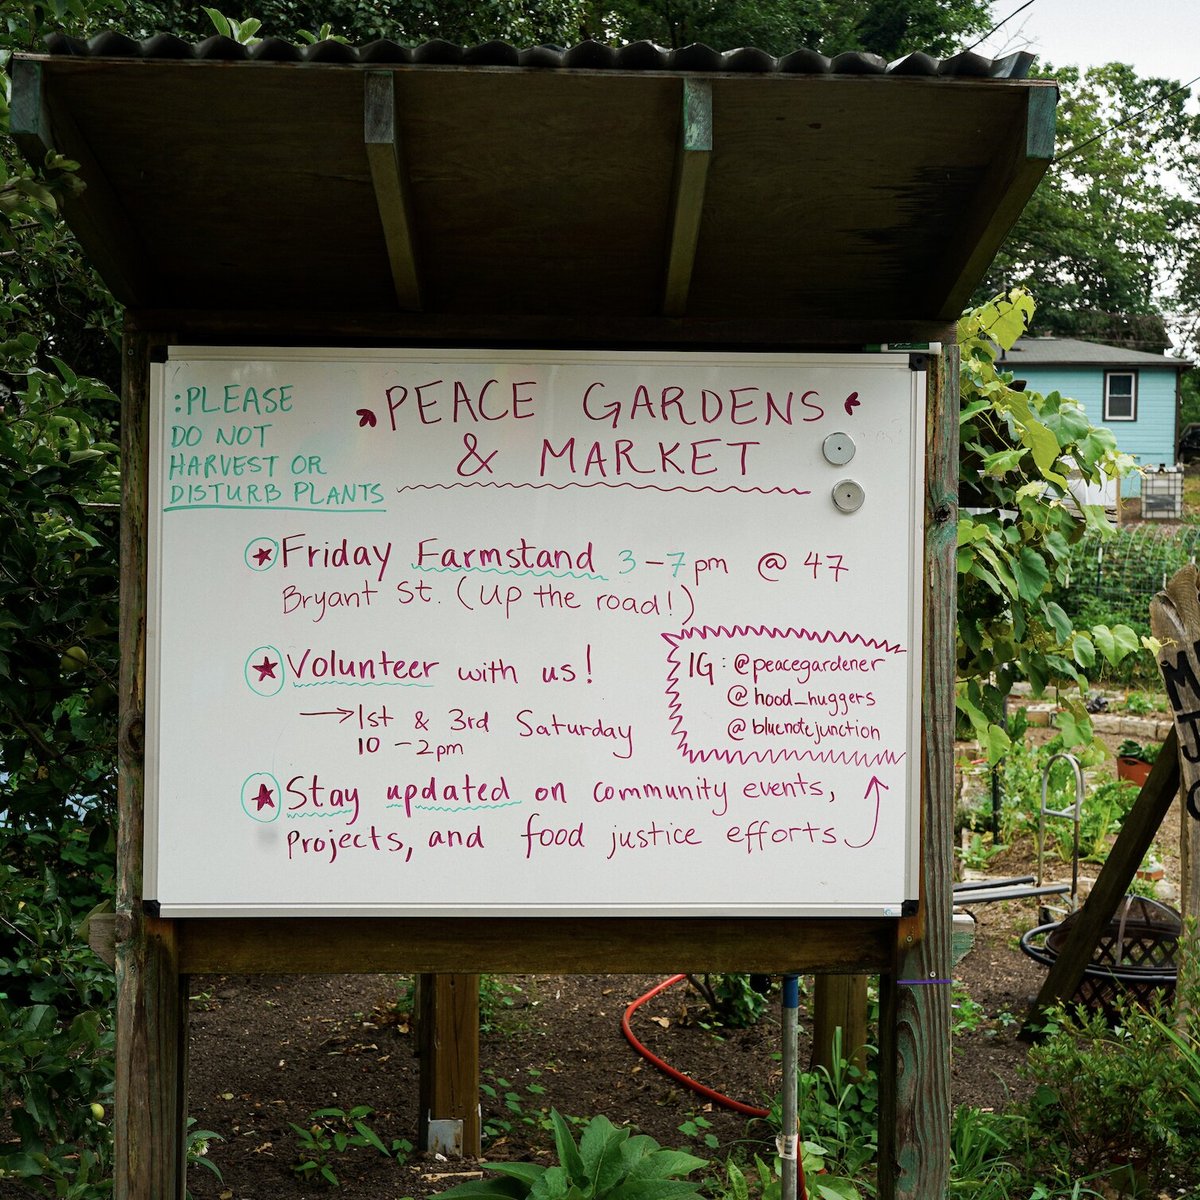 :PLEASE
DO NOT
HARVEST OR
DISTURB PLANTS
PEACE GARDENS
& MARKET
Friday Farmstand 3-7pm @ 47
Bryant St. (Up the road!)
Volunteer with us!
→1st & 3rd Saturday
10-2pm
IG: @peacegardener
@hood_huggers
@bluenotejunction
Stay updated on community events,
projects, and food justice efforts